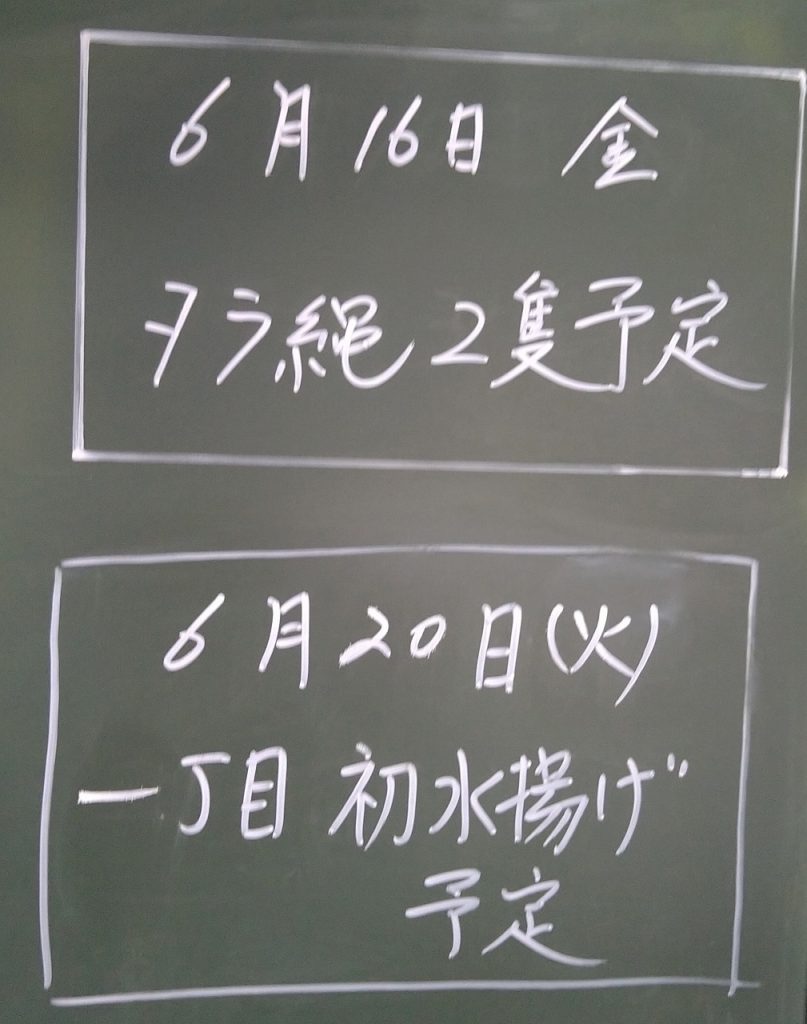 6月16日 金
タラ縄 2隻予定
6月20日(火)
一丁目 初水揚げ
予定